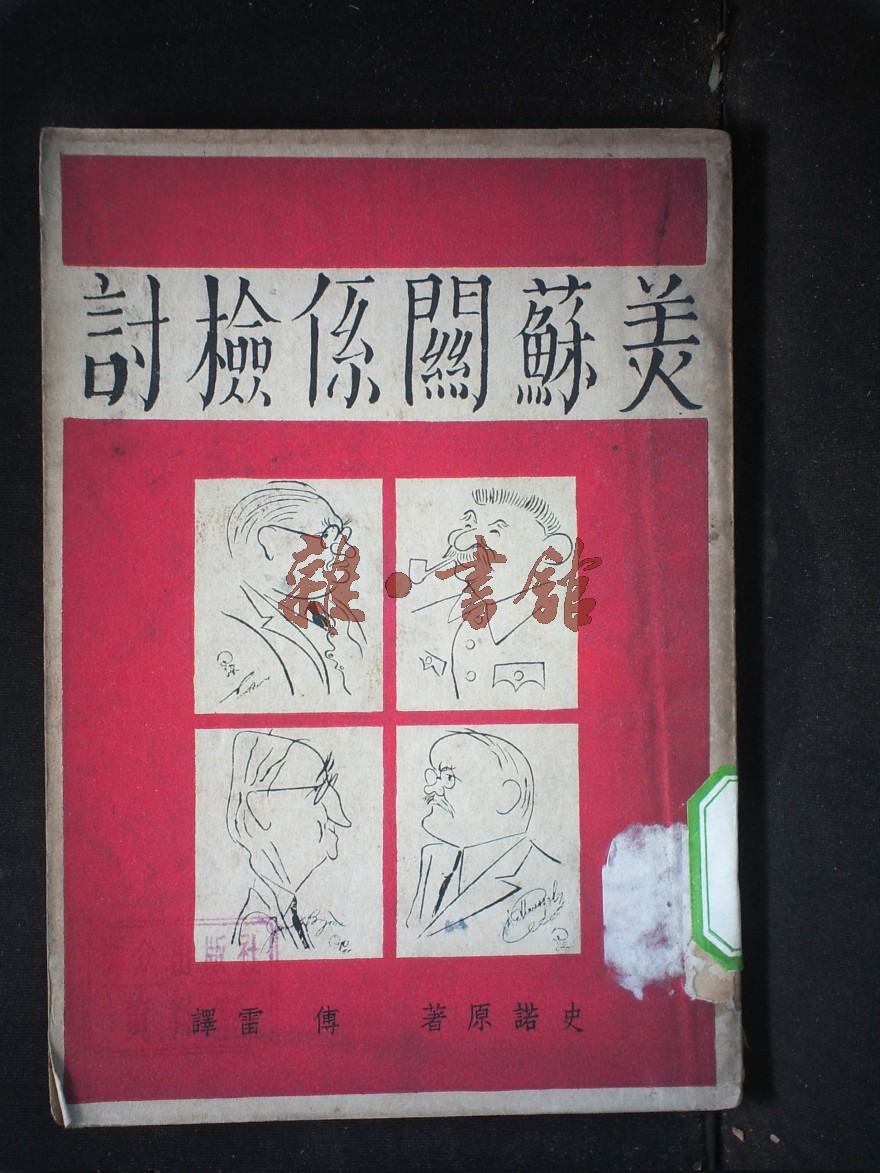 美蘇關係檢討
雜·書館
史諾原著 傅雷譯
出版社